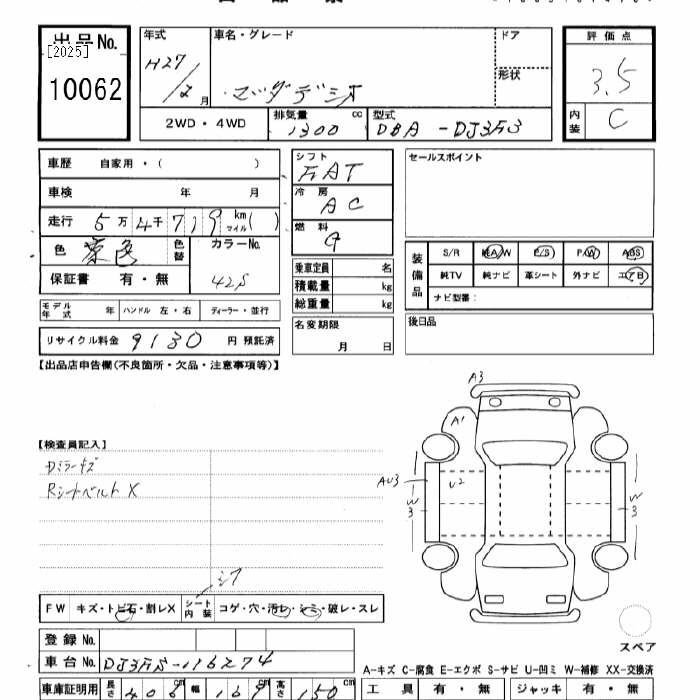 出品 No.
[2025]
10062
年式
H27/2月
車名・グレード
マツダデミオ
ドア
形状
評価点
3.5
内装
C
2WD・4WD
排気量
1300 cc
型式
DBA-DJ3FS
車歴 自家用・( )
車検 年 月
走行 5万4千719 km マイル( )
色
色替
カラーNo.
42S
保証書 有・無
モデル年式 年 ハンドル 左・右 ディーラー・並行
リサイクル料金 9130 円 預託済
シフト
FAT
冷房
AC
燃料
G
乗車定員 名
積載量 kg
総重量 kg
名変期限
月 日
セールスポイント
装備品
S/R 純A/W P/S P/W ABS
純TV 純ナビ 革シート 外ナビ エアB
ナビ型番:
後日品
【出品店申告欄(不良箇所・欠品・注意事項等)】
【検査員記入】
Dミラーキズ
Rシートベルト X
シワ
FW キズ・トビ石・割レX
シート内装 コゲ・穴・汚レ・シミ・破レ・スレ
A3
A1
AU3
U2
W3
W3
スペア
登録 No.
車台 No. DJ3FS-116274
車庫証明用 長さ 406cm 幅 169cm 高さ 150cm
A-キズ C-腐食 E-エクボ S-サビ U-凹ミ W-補修 XX-交換済
工具 有・無 ジャッキ 有・無